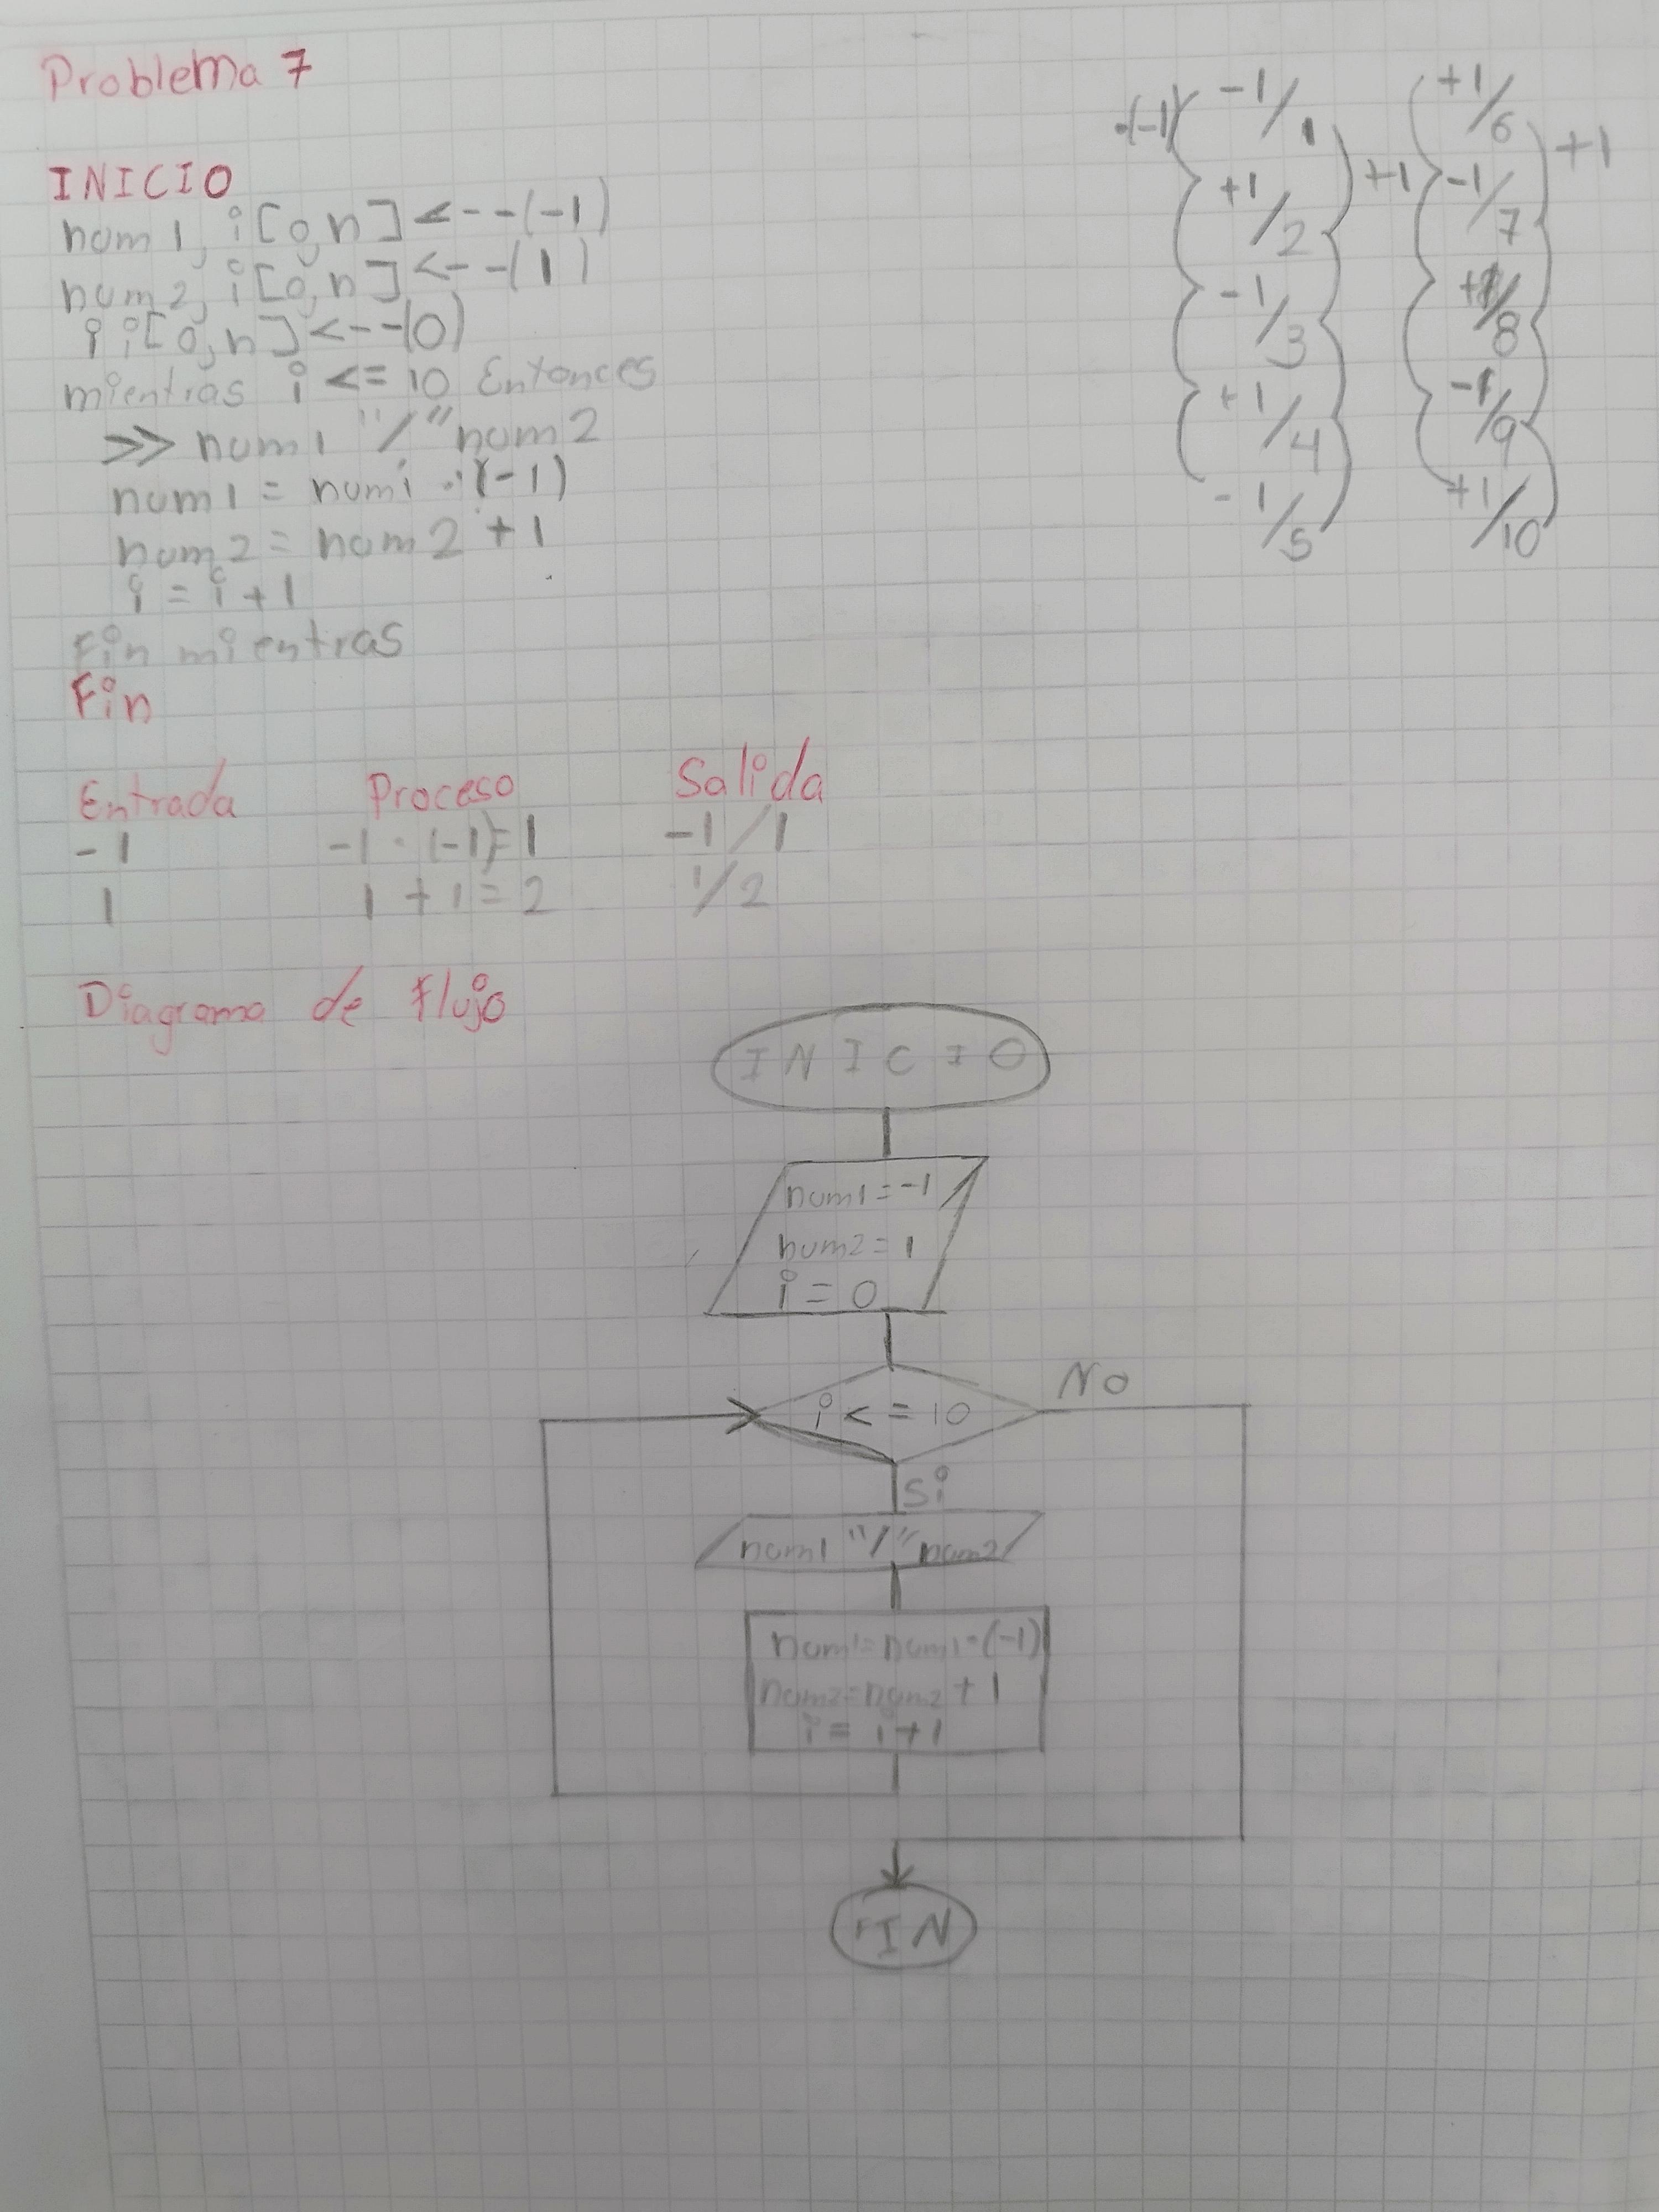 Problema 7
INICIO
num1, i[0,n] <--(-1)
num2, i[0,n] <--(1)
i i[0,n] <--(0)
mientras i <= 10 Entonces
>> num1 "/" num2
num1 = num1 · (-1)
num2 = num2 + 1
i = i + 1
Fin mientras
Fin
·(-1)
-1/1
+1/2
-1/3
+1/4
-1/5
+1
+1/6
-1/7
+1/8
-1/9
+1/10
+1
Entrada Proceso Salida
-1 -1 · (-1)=1 -1/1
1 1 + 1 = 2 1/2
Diagrama de flujo
INICIO
num1 = -1
num2 = 1
i = 0
i <= 10
No
Si
num1 "/" num2
num1=num1·(-1)
num2=num2+1
i = i+1
FIN